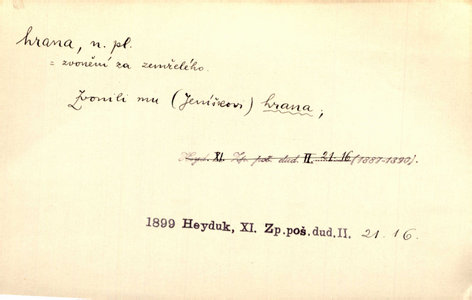 hrana, n. pl.
= zvonění za zemřelého.
Zvonili mu (Jeníškovi) hrana;
Heyd. XI. Zp. poš. dud. II. 21. 16 (1887-1890).
1899 Heyduk, XI. Zp.poš.dud.II. 21. 16.